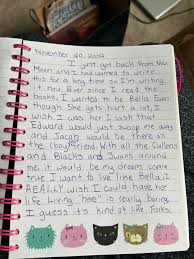 November 20, 2009
I just got back from New
Moon and I had wanted to write
this for a long time so I'm writing
it now. Ever since I read the
books, I wanted to be Bella. Even
though she gets hurt a lot, I
wish I was her. I wish that
Edward would just swoop me away
and Jacob would be there as
the (boy)friend. With all the Cullens
and Blacks and Swans around
me, it would be my dream come
true. I want to live like Bella. I
REALLY wish I could have her
life. Living here is really boring
I guess it's kind of like Forks.